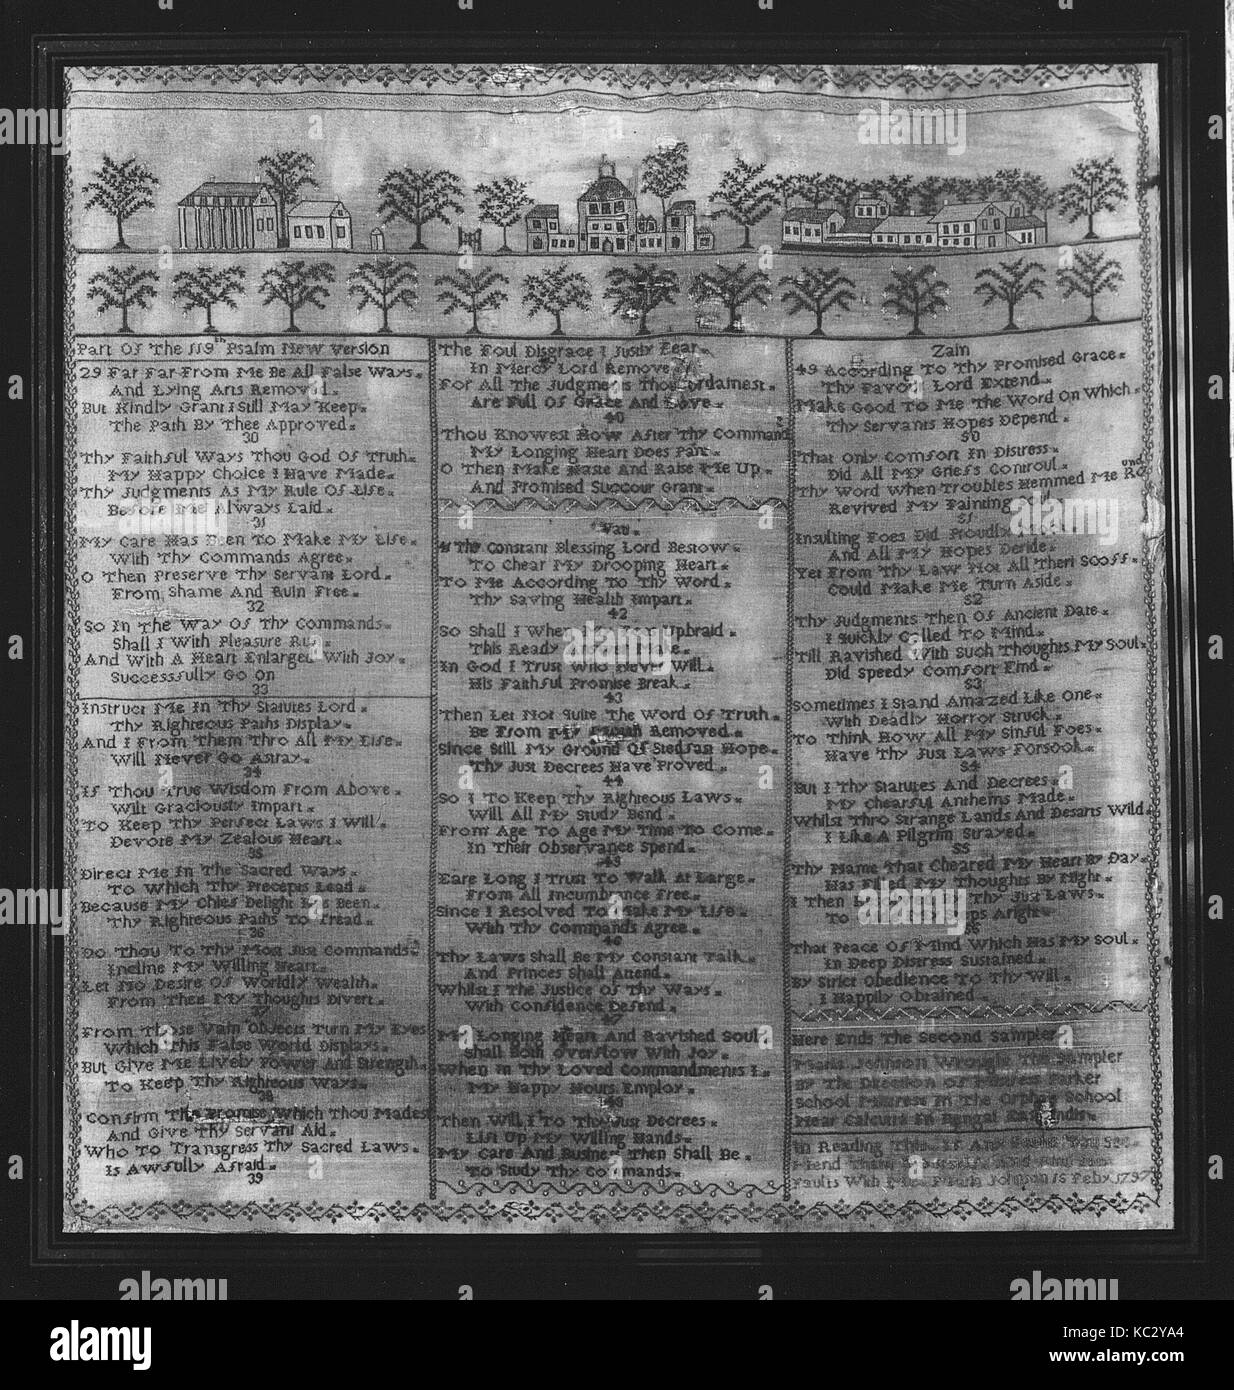 Part Of The 119th Psalm New Version
29 Far Far From Me Be All False Ways
And Lying Arts Removed
But Kindly Grant I Still May Keep
The Path By Thee Approved
30
Thy Faithful Ways Thou God Of Truth
My Happy Choice I Have Made
Thy Judgments As My Rule Of Life
Before Me Always Laid
31
My Care Has Been To Make My Life
With Thy Commands Agree
O Then Preserve Thy Servant Lord
From Shame And Ruin Free
32
So In The Way Of Thy Commands
Shall I With Pleasure Run
And With A Heart Enlarged With Joy
Successfully Go On
33
Instruct Me In Thy Statutes Lord
Thy Righteous Paths Display
And I From Them Thro All My Life
Will Never Go Astray
34
If Thou True Wisdom From Above
Wilt Graciously Impart
To Keep Thy Perfect Laws I Will
Devote My Zealous Heart
35
Direct Me In The Sacred Ways
To Which Thy Precepts Lead
Because My Chief Delight Has Been
Thy Righteous Paths To Tread
36
Do Thou To Thy Most Just Commands
Incline My Willing Heart
Let No Desire Of Worldly Wealth
From Thee My Thoughts Divert
37
From Those Vain Objects Turn My Eyes
Which This False World Displays
But Give Me Lively Power And Strength
To Keep Thy Righteous Ways
38
Confirm The Promise Which Thou Madest
And Give Thy Servant Aid
Who To Transgress Thy Sacred Laws
Is Awfully Afraid
39
The Foul Disgrace I Justly Fear
In Mercy Lord Remove
For All The Judgments Thou Ordainest
Are Full Of Grace And Love
40
Thou Knowest How After Thy Commands
My Longing Heart Does Pant
O Then Make Haste And Raise Me Up
And Promised Succour Grant
Vau
41 Thy Constant Blessing Lord Bestow
To Chear My Drooping Heart
To Me According To Thy Word
Thy Saving Health Impart
42
So Shall I When My Foes Upbraid
This Ready Answer Make
In God I Trust Who Never Will
His Faithful Promise Break
43
Then Let Not Quite The Word Of Truth
Be From My Mouth Removed
Since Still My Ground Of Stedfast Hope
Thy Just Decrees Have Proved
44
So I To Keep Thy Righteous Laws
Will All My Study Bend
From Age To Age My Time To Come
In Their Observance Spend
45
Eare Long I Trust To Walk At Large
From All Incumbrance Free
Since I Resolved To Make My Life
With Thy Commands Agree
46
Thy Laws Shall Be My Constant Talk
And Princes Shall Attend
Whilst I The Justice Of Thy Ways
With Confidence Defend
47
My Longing Heart And Ravished Soul
Shall Both Overflow With Joy
When In Thy Loved Commandments I
My Happy Hours Employ
48
Then Will I To Thy Just Decrees
Lift Up My Willing Hands
My Care And Business Then Shall Be
To Study Thy Commands
Zain
49 According To Thy Promised Grace
Thy Favour Lord Extend
Make Good To Me The Word On Which
Thy Servants Hopes Depend
50
That Only Comfort In Distress
Did All My Griefs Controul
Thy Word When Troubles Hemmed Me Round
Revived My Fainting
51
Insulting Foes Did Proudly
And All My Hopes Deride
Yet From Thy Law Not All Their Scoffs
Could Make Me Turn Aside
52
Thy Judgments Then Of Ancient Date
I Quickly Called To Mind
Till Ravished With Such Thoughts My Soul
Did Speedy Comfort Find
53
Sometimes I Stand Amazed Like One
With Deadly Horror Struck
To Think How All My Sinful Foes
Have Thy Just Laws Forsook
54
But I Thy Statutes And Decrees
My Chearful Anthems Made
Whilst Thro Strange Lands And Desarts Wild
I Like A Pilgrim Strayed
55
Thy Name That Cheared My Heart By Day
Has Filled My Thoughts By Night
I Then Resolved By Thy Just Laws
To My Steps Aright
56
That Peace Of Mind Which Has My Soul
In Deep Distress Sustained
By Strict Obedience To Thy Will
I Happily Obtained
Here Ends The Second Sampler
Maria Johnson Wrought The Sampler
By The Direction Of Mistress Parker
School Mistress In The Orphan School
Near Calcutt In Bengal East Indis
In Reading This If Any You See
Mend Them And
Faults With Me Maria Johnson 15 Feby 1797
alamy
KC2YA4
www.alamy.com